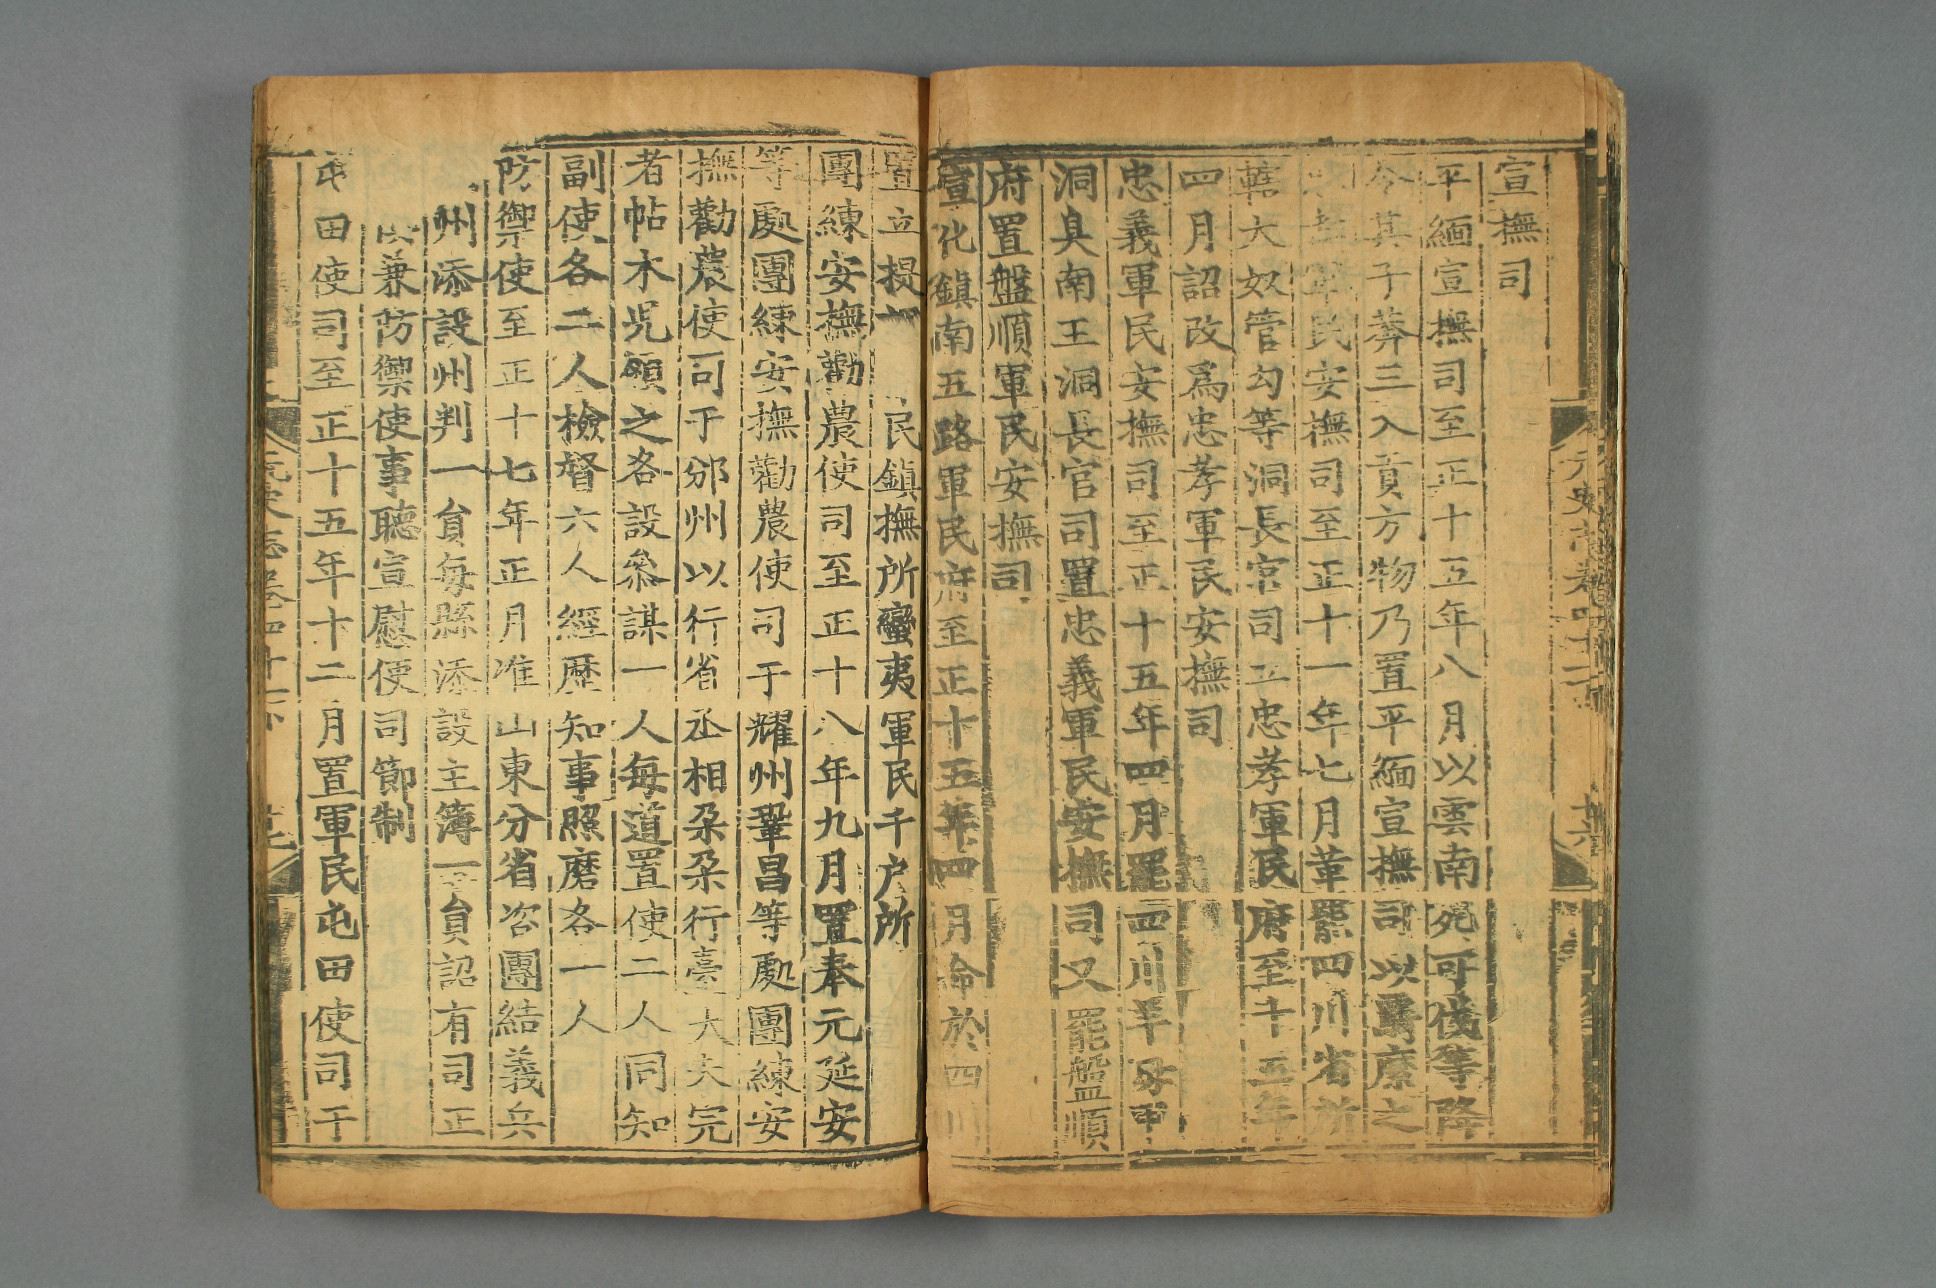 宣撫司
平緬宣撫司至正十五年八月以雲南死可伐等降
令其子莽三入貢方物乃置平緬宣撫司以羈縻之
軍民安撫司至正十一年七月革罷四川省所
轄大奴管勾等洞長官司立忠孝軍民府至十五年
四月詔改爲忠孝軍民安撫司
忠義軍民安撫司至正十五年四月罷四川羊母甲
洞臭南王洞長官司置忠義軍民安撫司又罷盤順
府置盤順軍民安撫司
宣化鎮南五路軍民府至正十五年四月命於四川
置立提 民鎮撫所蠻夷軍民千户所
團練安撫勸農使司至正十八年九月置奉元延安
等處團練安撫勸農使司于耀州鞏昌等處團練安
撫勸農使司于邠州以行省丞相朵朵行臺大夫完
者帖木児領之各設叅謀一人每道置使二人同知
副使各二人檢督六人經歷知事照磨各一人
防禦使至正十七年正月准山東分省咨團結義兵
州添設州判一員每縣添設主簿一員詔有司正
兼防禦使事聽宣慰使司節制
屯田使司至正十五年十二月置軍民屯田使司于
元史志卷四十二
元史志卷四十二